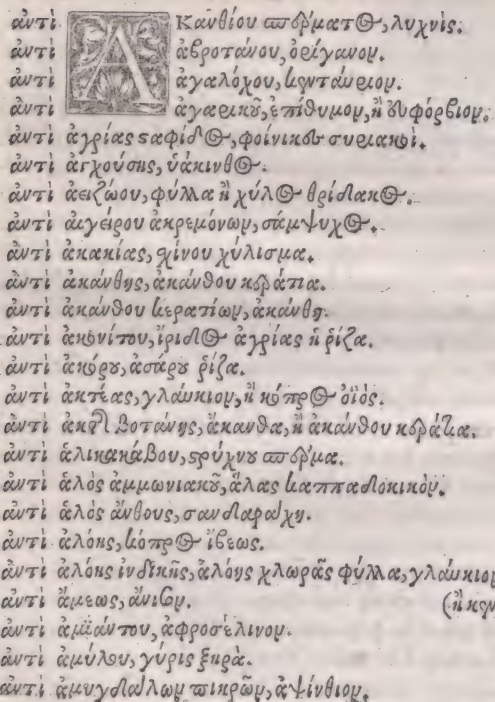 ἀντὶ Ἀκανθίου σπέρματος, λυχνὶς.
ἀντὶ ἀβροτάνου, ὀρίγανον.
ἀντὶ ἀγαλόχου, κενταύριον.
ἀντὶ ἀγαρικοῦ, ἐπίθυμον, ἢ ἐυφόρβιον.
ἀντὶ ἀγρίας σαφίδος, φοίνικου συριακοὶ.
ἀντὶ ἀγχούσης, ὑάκινθος.
ἀντὶ ἀειζώου, φύλλα ἢ χύλος θρίδακος.
ἀντὶ αἰγείρου ἀκρεμόνων, σάμψυχος.
ἀντὶ ἀκακίας, σχίνου χύλισμα.
ἀντὶ ἀκάνθης, ἀκάνθου κεράτια.
ἀντὶ ἀκάνθου κερατίων, ἀκάνθη.
ἀντὶ ἀκονίτου, ἴριδος ἀγρίας ἡ ῥίζα.
ἀντὶ ἀκόρου, ἀσάρου ῥίζα.
ἀντὶ ἀκτέας, γλαύκιον, ἢ κόπρος οἰὸς.
ἀντὶ βοτάνης, ἄκανθα, ἢ ἀκάνθου κεράτια.
ἀντὶ ἁλικακάβου, στρύχνου σπέρμα.
ἀντὶ ἁλὸς ἀμμωνιακοῦ, ἅλας καππαδοκικὸν.
ἀντὶ ἁλὸς ἄνθους, σανδαράχη.
ἀντὶ ἀλόης, κόπρος ἴβεως.
ἀντὶ ἀλόης ἰνδικῆς, ἀλόης χλωρᾶς φύλλα, γλαύκιον
ἀντὶ ἄμεως, ἄνισον. (ἢ κεν
ἀντὶ ἀμιάντου, ἀφροσέλινον.
ἀντὶ ἀμύλου, γύρις ξηρὰ.
ἀντὶ ἀμυγδάλων πικρῶν, ἀψίνθιον.